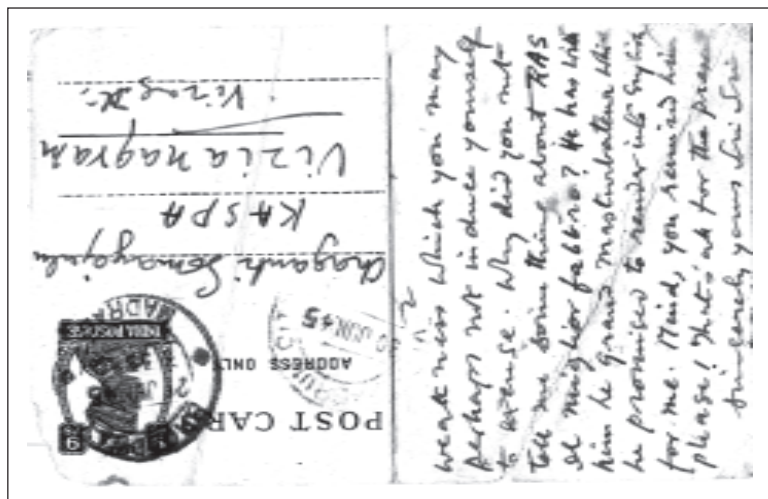 POST CARD
ADDRESS ONLY
INDIA POSTAGE
9
JUN 45
Chaganti Somayajulu
KASPA
Vizianagram
Vizag Dt:
weakness which you may
perhaps not induce yourself
to excuse. Why did you not
tell me something about RAS
il miglior fabbro? He has with
him le grand masturbateur
he promised to render into English
for me. Mind, you remind him
please! That's all for the present
Sincerely yours Sri Sri